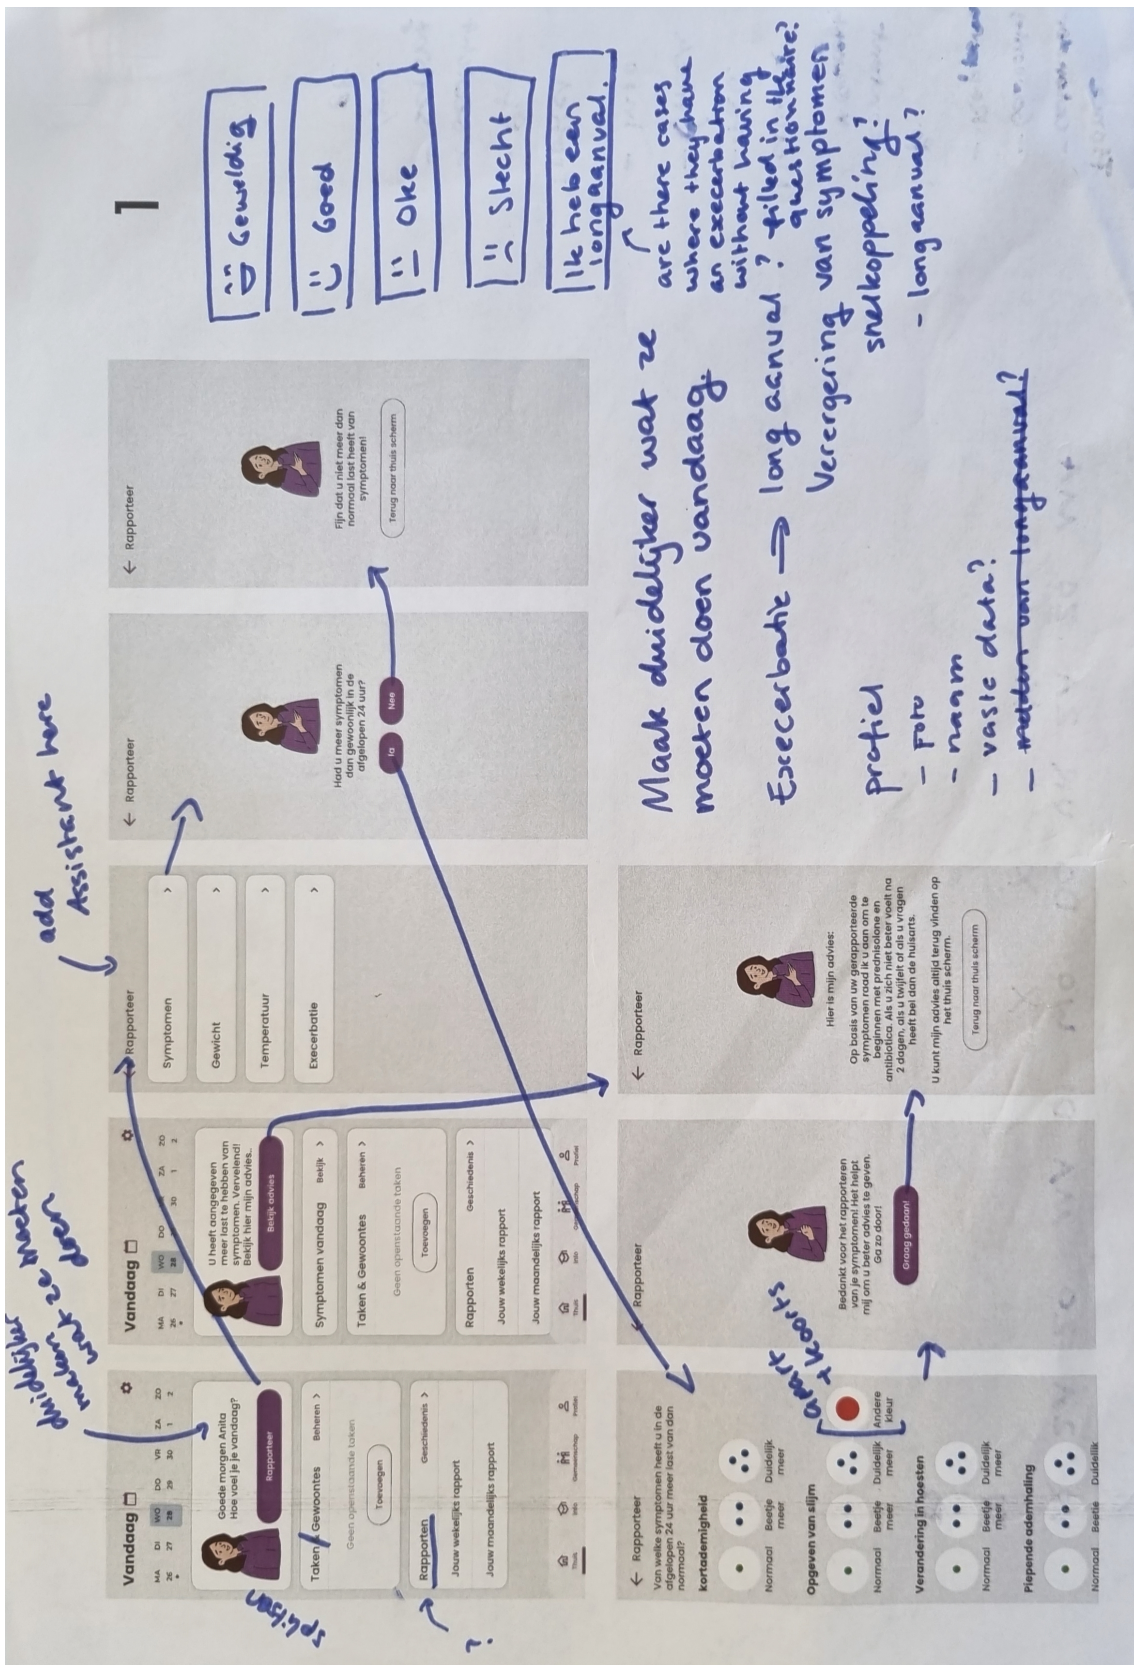 1
duidelijker
maken
wat ze moeten
doen
add
Assistant here
splitsen
?
Vandaag
MA DI WO DO VR ZA ZO
26 27 28 29 30 1 2
Goede morgen Anita
Hoe voel je je vandaag?
Rapporteer
Taken & Gewoontes
Beheren >
Geen openstaande taken
Toevoegen
Rapporten
Geschiedenis >
Jouw wekelijks rapport
Jouw maandelijks rapport
Thuis
Info
Gemeenschap
Profiel
Vandaag
MA DI WO DO ZA ZO
26 27 28 30 1 2
U heeft aangegeven
meer last te hebben van
symptomen. Vervelend!
Bekijk hier mijn advies..
Bekijk advies
Symptomen vandaag
Bekijk >
Taken & Gewoontes
Beheren >
Geen openstaande taken
Toevoegen
Rapporten
Geschiedenis >
Jouw wekelijks rapport
Jouw maandelijks rapport
Thuis
Info
Profiel
← Rapporteer
Symptomen >
Gewicht >
Temperatuur >
Execerbatie >
← Rapporteer
Had u meer symptomen
dan gewoonlijk in de
afgelopen 24 uur?
Ja
Nee
← Rapporteer
Fijn dat u niet meer dan
normaal last heeft van
symptomen!
Terug naar thuis scherm
Geweldig
Goed
Oke
Slecht
Ik heb een
longaanval.
← Rapporteer
Van welke symptomen heeft u in de
afgelopen 24 uur meer last van dan
normaal?
kortademigheid
Normaal
Beetje meer
Duidelijk meer
Opgeven van slijm
Normaal
Beetje meer
Duidelijk meer
Andere kleur
apart
+ koorts
Verandering in hoesten
Normaal
Beetje meer
Duidelijk meer
Piepende ademhaling
Normaal
Beetje
Duidelijk
← Rapporteer
Bedankt voor het rapporteren
van je symptomen! Het helpt
mij om u beter advies te geven.
Ga zo door!
Graag gedaan!
← Rapporteer
Hier is mijn advies:
Op basis van uw gerapporteerde
symptomen raad ik u aan om te
beginnen met prednisolone en
antibiotica. Als u zich niet beter voelt na
2 dagen, als u twijfelt of als u vragen
heeft bel dan de huisarts.
U kunt mijn advies altijd terug vinden op
het thuis scherm.
Terug naar thuis scherm
Maak duidelijker wat ze
moeten doen vandaag.
are there cases
where they have
an execerbation
without having
filled in the
questionnaire?
Execerbatie → long aanval?
Verergering van symptomen
snelkoppeling?
- longaanval?
profiel
- foto
- naam
- vaste data?
- melden van longaanval?